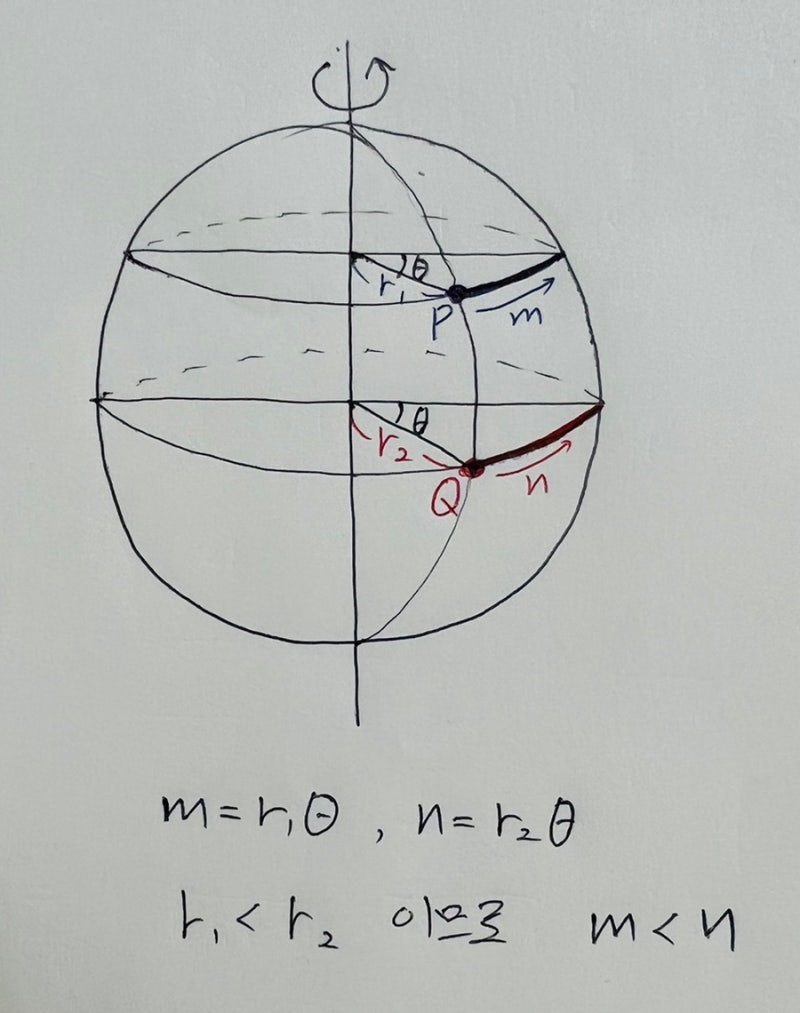 θ
r₁
P
m
θ
r₂
Q
n
m=r₁θ , n=r₂θ
r₁<r₂ 이므로 m<n